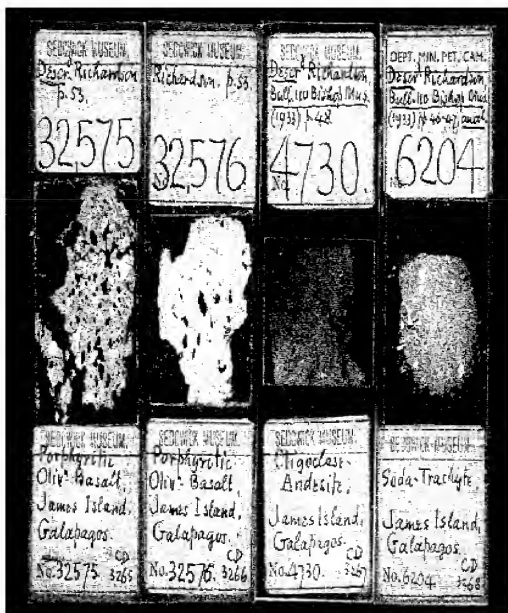 SEDGWICK MUSEUM.
Descr. Richardson
p.53.
32,575
SEDGWICK MUSEUM.
Richardson. p.53.
No. 32,576
SEDGWICK MUSEUM.
Descr. Richardson
Bull. 110 Bishop Mus.
(1933) p.48
No. 4730.
DEPT. MIN. PET. CAM.
Descr. Richardson
Bull. 110 Bishop Mus.
(1933) pp 46-47, anal
No. 6204
SEDGWICK MUSEUM.
Porphyritic
Oliv. Basalt,
James Island,
Galapagos.
CD
No. 32575. 3265
SEDGWICK MUSEUM.
Porphyritic
Oliv. Basalt,
James Island,
Galapagos.
CD
No. 32576. 3266
SEDGWICK MUSEUM.
Oligoclase-
Andesite.
James Island,
Galapagos.
CD
No. 4730. 3267
SEDGWICK MUSEUM.
Soda-Trachyte
James Island,
Galapagos.
CD
No. 6204 3268